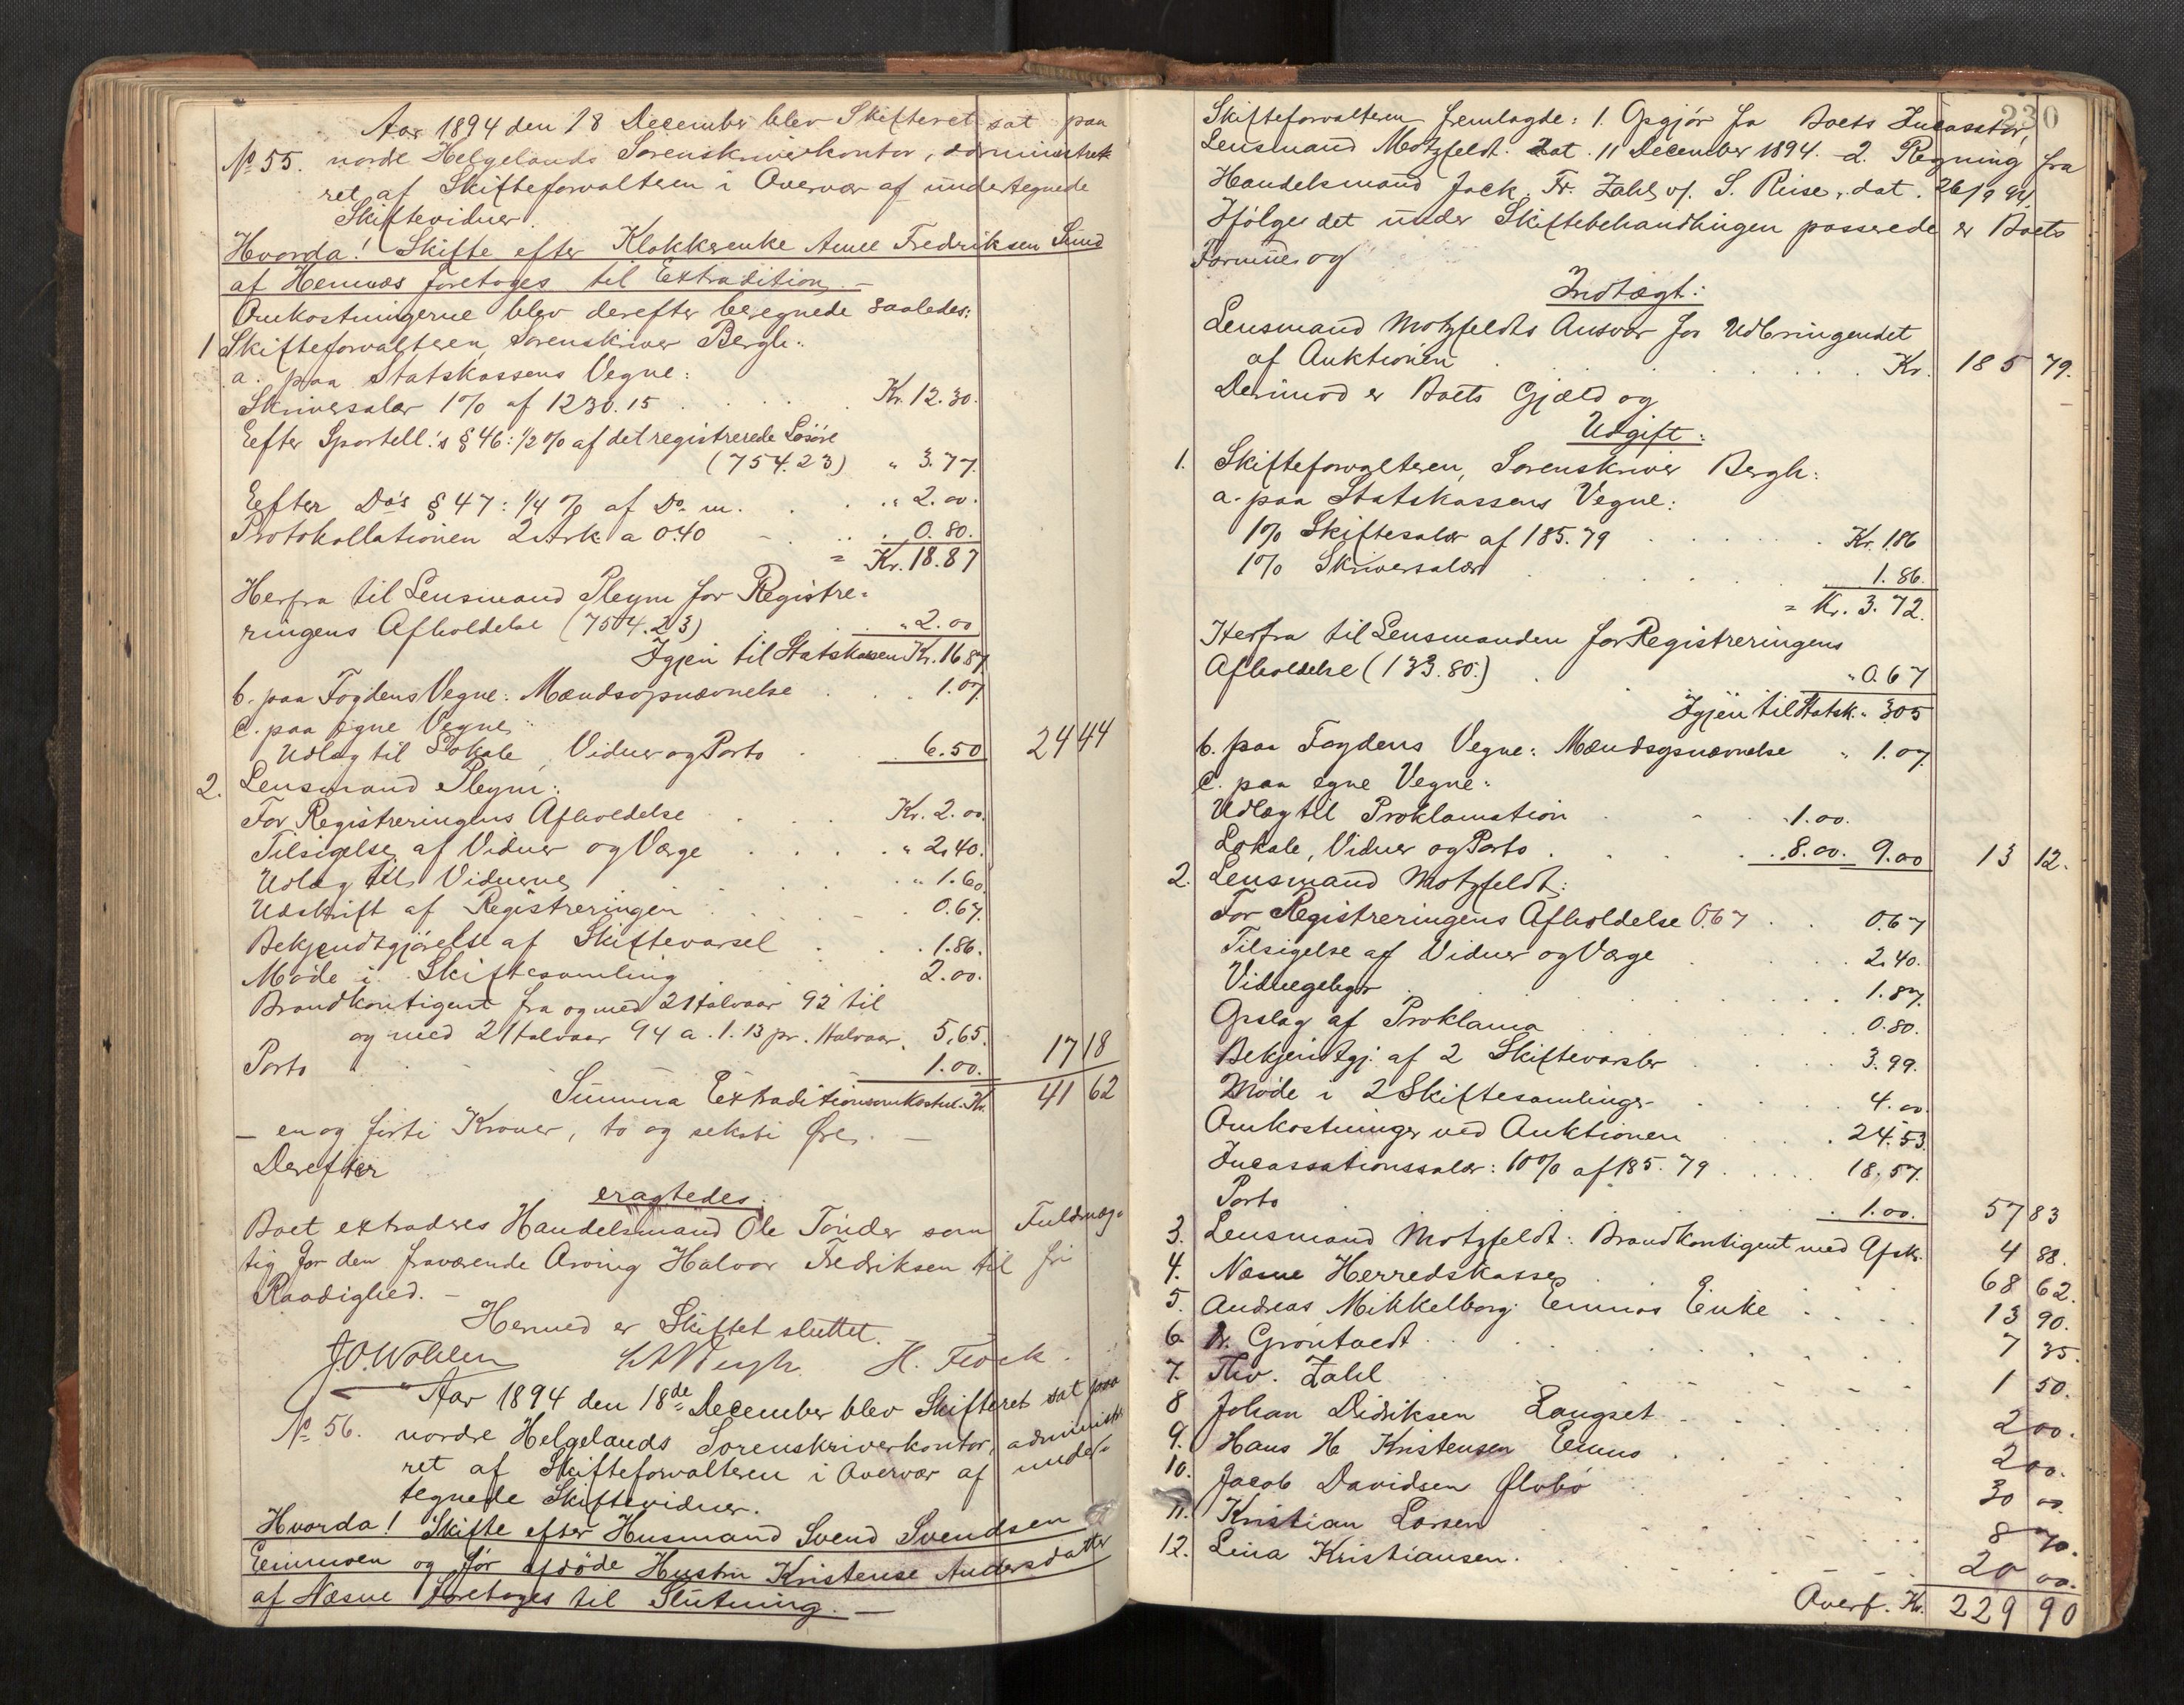 Aar 1894 den 18 December blev Skifteret sat paa
No 55. nordre Helgelands Sorenskriverkontor, administre-
ret af Skifteforvalteren i Overvær af undertegnede
Skiftevidner.
Hvorda! Skifte efter Klokkerenke Anne Fredriksen Sund
af Hemnes foretoges til Extradition. —
Omkostningerne blev derefter beregnede saaledes:
1 Skifteforvalteren, Sorenskriver Bergh:
a. paa Statskassens Vegne:
Skriversalær 1% af 1230.15 Kr. 12.30.
Efter Sportell.'s § 46: ½ % af det registrerede Løsøre
(754.23) " 3.77.
Efter Do's § 47: ¼ % af Do m. " 2.00.
Protokollationen 2 Ark a 0.40 0.80.
= Kr. 18.87
Herfra til Lensmand Pleym for Registre-
ringens Afholdelse (754.23) " 2.00
Igjen til Statskassen Kr. 16.87.
b. paa Fogdens Vegne: Mændsopnævnelse 1.07.
c. paa egne Vegne:
Udlæg til Lokale, Vidner og Porto 6.50 24 44
2. Lensmand Pleym:
For Registreringens Afholdelse Kr. 2.00.
Tilsigelse af Vidner og Værge " 2.40.
Udlæg til Vidnerne " 1.60.
Udskrift af Registreringen 0.67.
Bekjendtgjørelse af Skiftevarsel 1.86.
Møde i Skiftesamling 2.00.
Brandkontigent fra og med 2 Halvaar 92 til
og med 2 Halvaar 94 a. 1.13 pr. Halvaar. 5.65.
Porto 1.00. 17 18
Summa Extraditionsomkostn. Kr. 41 62
— en og firti Kroner, to og seksti Øre. —
Derefter
eragtedes:
Boet extraderes Handelsmand Ole Tønder som Fuldmæg-
tig for den fraværende Arving Halvor Fredriksen til fri
Raadighed. —
Hermed er Skiftet sluttet.
J.O. Wohlen Bergh. H. Flock.
Aar 1894 den 18de December blev Skifteret sat paa
No 56. nordre Helgelands Sorenskriverkontor, administre-
ret af Skifteforvalteren i Overvær af under-
tegnede Skiftevidner.
Hvorda! Skifte efter Husmand Svend Svendsen
og før afdøde Hustru Kristense Andersdatter
af Næsne foretoges til Slutning. —
230
Skifteforvalteren fremlagde: 1. Opgjør fra Boets Incassator,
Lensmand Motzfeldt. Dat. 11 December 1894. — 2. Regning fra
Handelsmand Jack. Fr. Zahl v/. S. Riise, dat. 26/9 94.
Ifølge det under Skiftebehandlingen passerede er Boets
Formue og
Indtægt:
Lensmand Motzfeldts Ansvar for Udbringendet
af Auktionen Kr. 185 79.
Derimod er Boets Gjæld og
Udgift:
1. Skifteforvalteren, Sorenskriver Bergh:
a. paa Statskassens Vegne:
1% Skiftesalær af 185.79 Kr. 1.86
1% Skriversalær 1.86.
= Kr. 3.72.
Herfra til Lensmanden for Registreringens
Afholdelse (133.80.) " 0.67
Igjen til Statsk. " 3.05
b. paa Fogdens Vegne: Mændsopnævnelse " 1.07.
c. paa egne Vegne:
Udlæg til Proklamation 1.00.
Lokale, Vidner og Porto 8.00. 9.00 13 12.
2. Lensmand Motzfeldt:
For Registreringens Afholdelse 0.67 0.67
Tilsigelse af Vidner og Værge 2.40.
Vidnegebyr 1.87.
Opslag af Proklama 0.80.
Bekjendtgj. af 2 Skiftevarsler 3.99.
Møde i 2 Skiftesamlinger 4.00.
Omkostninger ved Auktionen 24.53.
Incassationssalær: 10% af 185.79 18.57.
Porto 1.00. 57 83
3. Lensmand Motzfeldt: Brandkontigent med Afskr. 4 88.
4. Næsne Herredskasse 68 62.
5. Andreas Mikkelborg Enke 13 90.
6. Dr. Grøntvedt 7 35.
7. Thv. Zahl 1 50.
8 Johan Didriksen Langset 2 00.
9. Hans H Kristensen 2 00.
10. Jacob Davidsen 30 00
11. Kristian Larsen 8 70.
12. Lina Kristiansen. 20 00.
Overf. Kr. 229 90